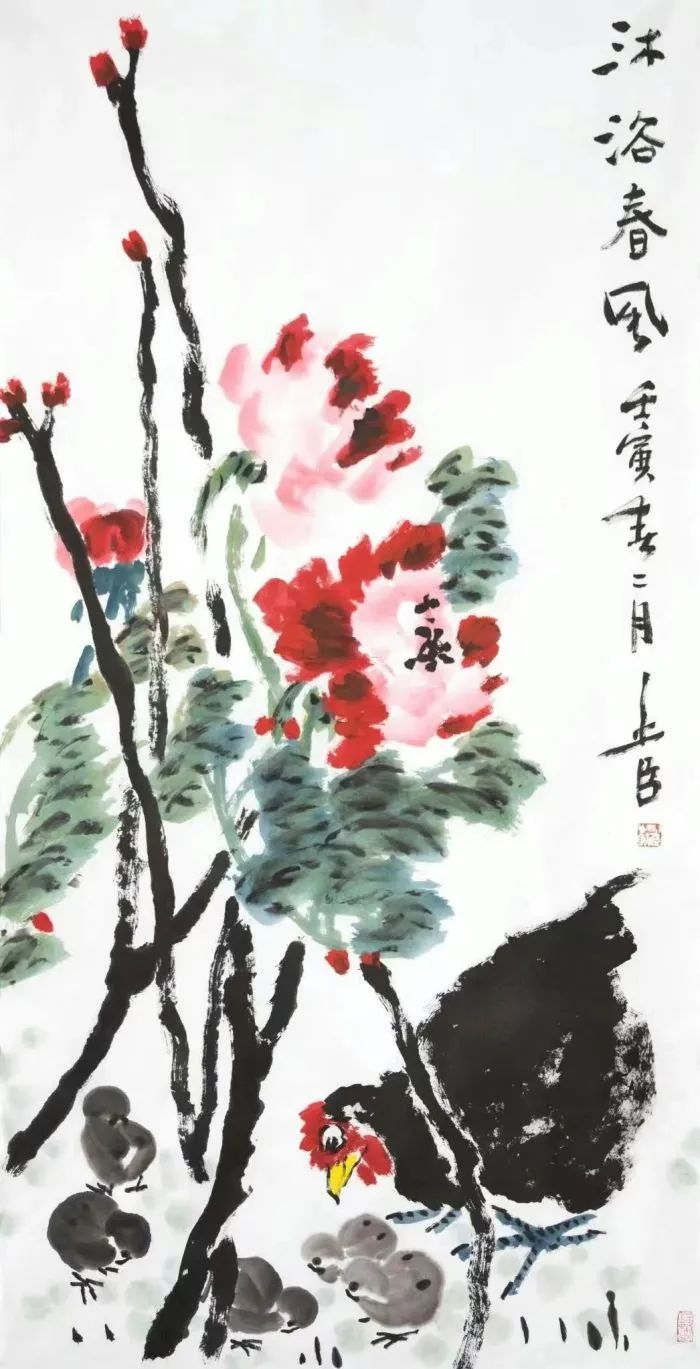 沐浴春风 壬寅春二月